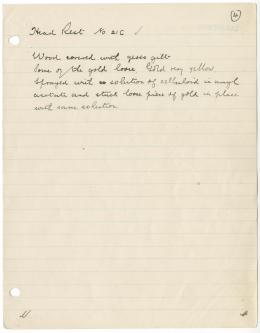 4
Head Rest No 21c
Wood covered with gesso gilt
Some of the gold loose. Gold very yellow.
Sprayed with a solution of celluloid in amyl
acetate and stuck loose piece of gold in place
with same solution